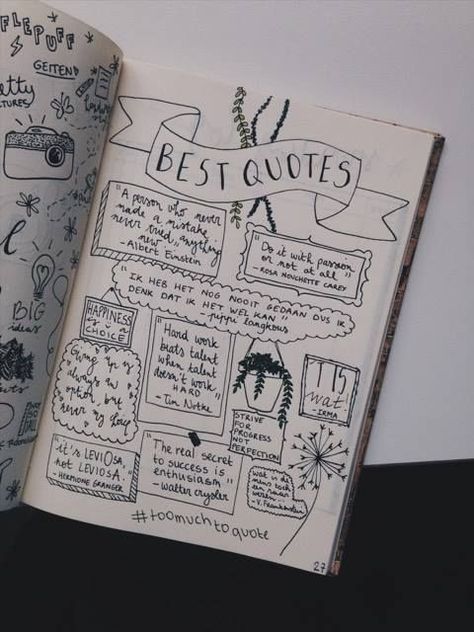 FLEPUFF
GEITEN
BIG
ideas
BEST QUOTES
"A person who never
made a mistake
never tried anything
new"
- Albert Einstein
"Do it with passion
or not at all"
- ROSA NOUCHETTE CAREY
"IK HEB HET NOG NOOIT GEDAAN DUS IK
DENK DAT IK HET WEL KAN"
- pippi langkous
HAPPINESS
is a
CHOICE
"Hard work
beats talent
when talent
doesn't work
HARD"
- Tim Notke
"Giving up is
always an
option but
never my choice"
wat!
- IRMA
STRIVE
FOR
PROGRESS
NOT
PERFECTION
"it's LEVIOSA,
not LEVIOSA"
- HERMIONE GRANGER
"The real secret
to success is
enthusiasm"
- Walter crysler
wat is de
mens toch
een
- V. Frankenstein
#toomuchtoquote
27